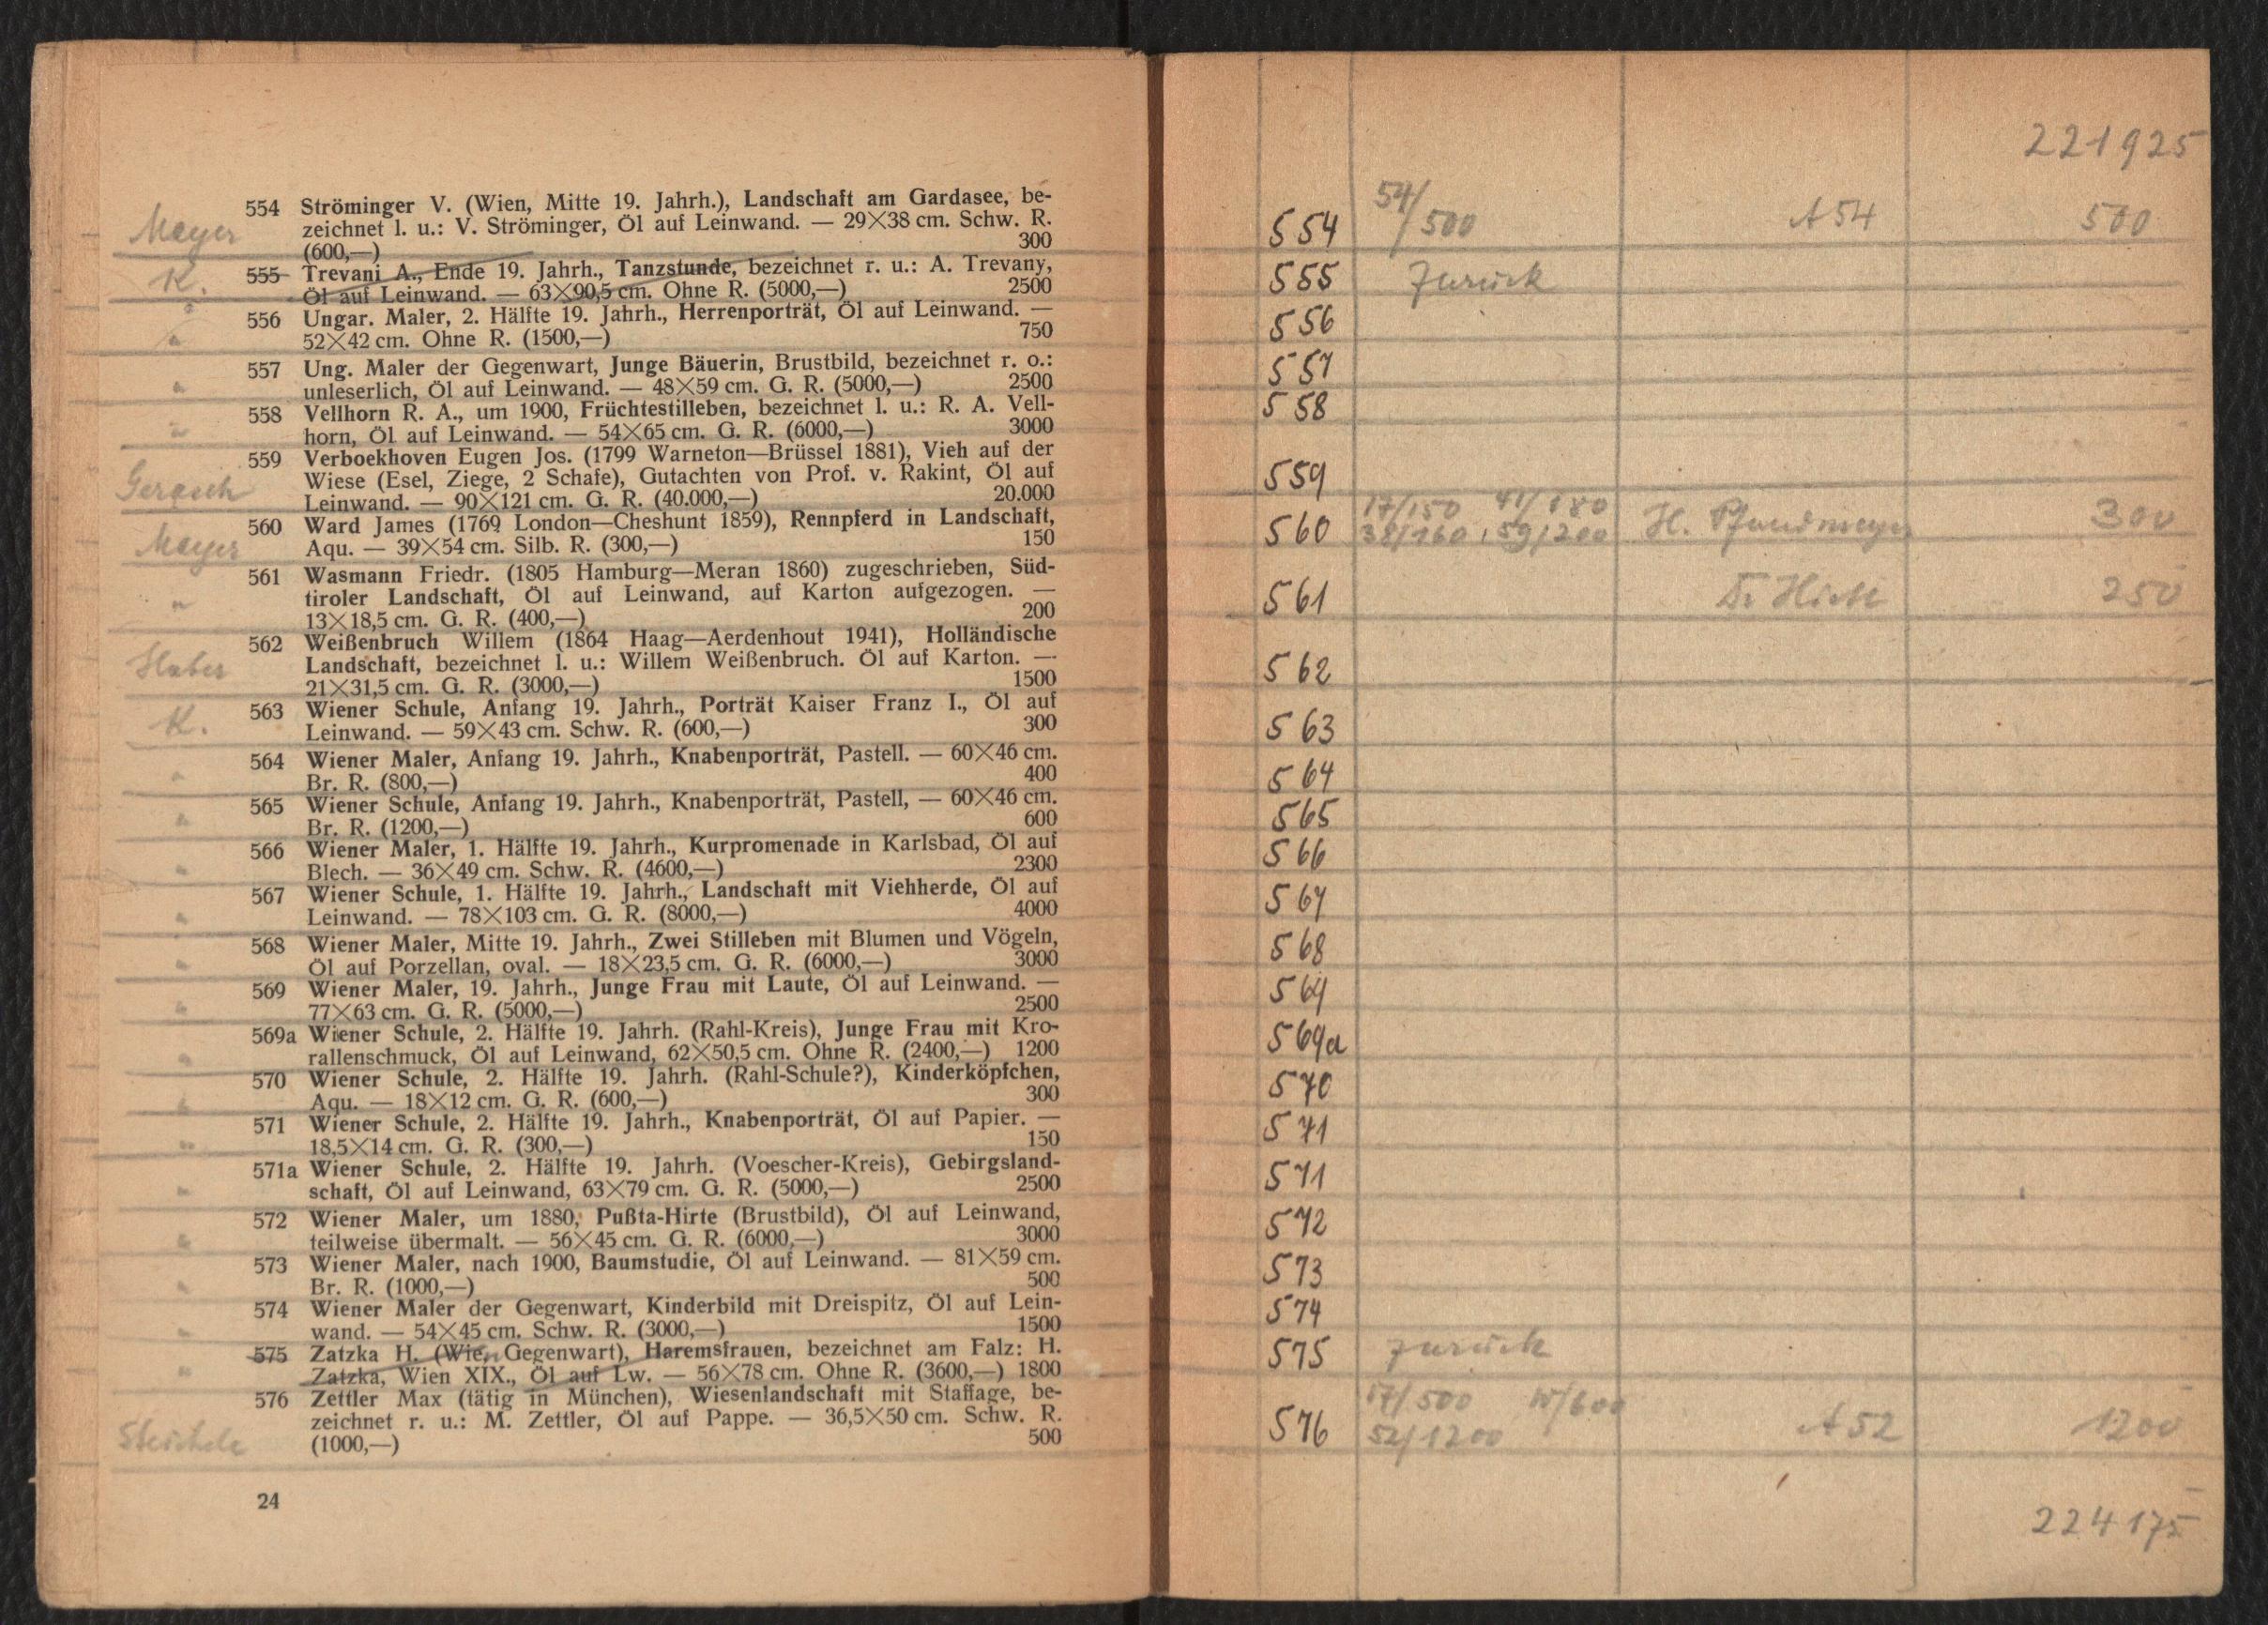 554 Ströminger V. (Wien, Mitte 19. Jahrh.), Landschaft am Gardasee, be-
Meyer zeichnet l. u.: V. Ströminger, Öl auf Leinwand. — 29×38 cm. Schw. R.
(600,—) 300
K. 555 Trevani A., Ende 19. Jahrh., Tanzstunde, bezeichnet r. u.: A. Trevany,
Öl auf Leinwand. — 63×90,5 cm. Ohne R. (5000,—) 2500
556 Ungar. Maler, 2. Hälfte 19. Jahrh., Herrenporträt, Öl auf Leinwand. —
" 52×42 cm. Ohne R. (1500,—) 750
557 Ung. Maler der Gegenwart, Junge Bäuerin, Brustbild, bezeichnet r. o.:
" unleserlich, Öl auf Leinwand. — 48×59 cm. G. R. (5000,—) 2500
558 Vellhorn R. A., um 1900, Früchtestilleben, bezeichnet l. u.: R. A. Vell-
" horn, Öl auf Leinwand. — 54×65 cm. G. R. (6000,—) 3000
559 Verboekhoven Eugen Jos. (1799 Warneton—Brüssel 1881), Vieh auf der
Gerasch Wiese (Esel, Ziege, 2 Schafe), Gutachten von Prof. v. Rakint, Öl auf
Leinwand. — 90×121 cm. G. R. (40.000,—) 20.000
560 Ward James (1769 London—Cheshunt 1859), Rennpferd in Landschaft,
Meyer Aqu. — 39×54 cm. Silb. R. (300,—) 150
561 Wasmann Friedr. (1805 Hamburg—Meran 1860) zugeschrieben, Süd-
" tiroler Landschaft, Öl auf Leinwand, auf Karton aufgezogen. —
13×18,5 cm. G. R. (400,—) 200
562 Weißenbruch Willem (1864 Haag—Aerdenhout 1941), Holländische
Landschaft, bezeichnet l. u.: Willem Weißenbruch. Öl auf Karton. —
21×31,5 cm. G. R. (3000,—) 1500
K. 563 Wiener Schule, Anfang 19. Jahrh., Porträt Kaiser Franz I., Öl auf
Leinwand. — 59×43 cm. Schw. R. (600,—) 300
564 Wiener Maler, Anfang 19. Jahrh., Knabenporträt, Pastell. — 60×46 cm.
" Br. R. (800,—) 400
565 Wiener Schule, Anfang 19. Jahrh., Knabenporträt, Pastell, — 60×46 cm.
" Br. R. (1200,—) 600
566 Wiener Maler, 1. Hälfte 19. Jahrh., Kurpromenade in Karlsbad, Öl auf
" Blech. — 36×49 cm. Schw. R. (4600,—) 2300
567 Wiener Schule, 1. Hälfte 19. Jahrh., Landschaft mit Viehherde, Öl auf
" Leinwand. — 78×103 cm. G. R. (8000,—) 4000
568 Wiener Maler, Mitte 19. Jahrh., Zwei Stilleben mit Blumen und Vögeln,
" Öl auf Porzellan, oval. — 18×23,5 cm. G. R. (6000,—) 3000
569 Wiener Maler, 19. Jahrh., Junge Frau mit Laute, Öl auf Leinwand. —
" 77×63 cm. G. R. (5000,—) 2500
569a Wiener Schule, 2. Hälfte 19. Jahrh. (Rahl-Kreis), Junge Frau mit Kro-
" rallenschmuck, Öl auf Leinwand, 62×50,5 cm. Ohne R. (2400,—) 1200
570 Wiener Schule, 2. Hälfte 19. Jahrh. (Rahl-Schule?), Kinderköpfchen,
" Aqu. — 18×12 cm. G. R. (600,—) 300
571 Wiener Schule, 2. Hälfte 19. Jahrh., Knabenporträt, Öl auf Papier. —
" 18,5×14 cm. G. R. (300,—) 150
571a Wiener Schule, 2. Hälfte 19. Jahrh. (Voescher-Kreis), Gebirgsland-
" schaft, Öl auf Leinwand, 63×79 cm. G. R. (5000,—) 2500
572 Wiener Maler, um 1880, Pußta-Hirte (Brustbild), Öl auf Leinwand,
" teilweise übermalt. — 56×45 cm. G. R. (6000,—) 3000
573 Wiener Maler, nach 1900, Baumstudie, Öl auf Leinwand. — 81×59 cm.
" Br. R. (1000,—) 500
574 Wiener Maler der Gegenwart, Kinderbild mit Dreispitz, Öl auf Lein-
" wand. — 54×45 cm. Schw. R. (3000,—) 1500
575 Zatzka H. (Wien, Gegenwart), Haremsfrauen, bezeichnet am Falz: H.
" Zatzka, Wien XIX., Öl auf Lw. — 56×78 cm. Ohne R. (3600,—) 1800
576 Zettler Max (tätig in München), Wiesenlandschaft mit Staffage, be-
zeichnet r. u.: M. Zettler, Öl auf Pappe. — 36,5×50 cm. Schw. R.
(1000,—) 500
24
221925
554 54/500 A 54 500
555 Zurück
556
557
558
559
17/150 41/180
560 38/160, 59/200 300
561 250
562
563
564
565
566
567
568
569
569a
570
571
571
572
573
574
575 Zurück
17/500
576 52/1200 A 52 1200
224175